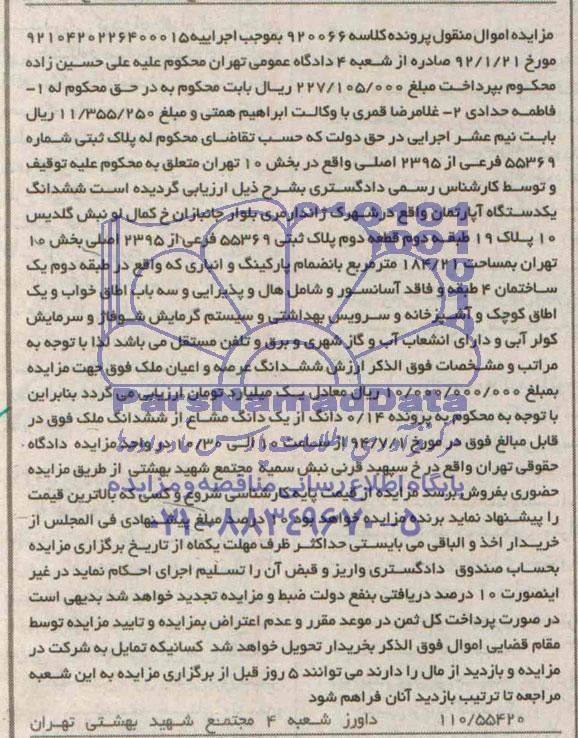 مزایده اموال منقول پرونده کلاسه ۹۲۰۰۶۶ بموجب اجراییه ۹۲۱۰۴۲۰۲۲۶۴۰۰۰۱۵
مورخ ۹۲/۱/۲۱ صادره از شعبه ۴ دادگاه عمومی تهران محکوم علیه علی حسین زاده
محکوم بپرداخت مبلغ ۲۲۷/۱۰۵/۰۰۰ ریال بابت محکوم به در حق محکوم له ۱-
فاطمه حدادی ۲- غلامرضا قمری با وکالت ابراهیم همتی و مبلغ ۱۱/۳۵۵/۲۵۰ ریال
بابت نیم عشر اجرایی در حق دولت که حسب تقاضای محکوم له پلاک ثبتی شماره
۵۵۳۶۹ فرعی از ۲۳۹۵ اصلی واقع در بخش ۱۰ تهران متعلق به محکوم علیه توقیف
و توسط کارشناس رسمی دادگستری بشرح ذیل ارزیابی گردیده است ششدانگ
یکدستگاه آپارتمان واقع درشهرک ژاندارمری بلوار جانبازان خ کمال لو نبش گلدیس
۱۰ پلاک ۱۹ طبقه دوم قطعه دوم پلاک ثبتی ۵۵۳۶۹ فرعی از ۲۳۹۵ اصلی بخش ۱۰
تهران بمساحت ۱۸۴/۲۱ مترمربع بانضمام پارکینگ و انباری که واقع در طبقه دوم یک
ساختمان ۴ طبقه و فاقد آسانسور و شامل هال و پذیرایی و سه باب اطاق خواب و یک
اطاق کوچک و آشپزخانه و سرویس بهداشتی و سیستم گرمایش شوفاژ و سرمایش
کولر آبی و دارای انشعاب آب و گاز شهری و برق و تلفن مستقل می باشد لذا با توجه به
مراتب و مشخصات فوق الذکر ارزش ششدانگ عرصه و اعیان ملک فوق جهت مزایده
بمبلغ ۱۰/۰۰۰/۰۰۰/۰۰۰ ریال معادل یک میلیارد تومان ارزیابی می گردد بنابراین
با توجه به محکوم به پرونده ۰/۱۴ دانگ از یک دانگ مشاع از ششدانگ ملک فوق در
قابل مبالغ فوق در مورخ ۹۴/۷/۱ از ساعت ۱۰ الی ۱۰/۳۰ در واحد مزایده دادگاه
حقوقی تهران واقع در خ سپهبد قرنی نبش سمیه مجتمع شهید بهشتی از طریق مزایده
حضوری بفروش برسد مزایده از قیمت پایه کارشناسی شروع و کسی که بالاترین قیمت
را پیشنهاد نماید برنده مزایده خواهد بود ۱۰ درصد مبلغ پیشنهادی فی المجلس از
خریدار اخذ و الباقی می بایستی حداکثر ظرف مهلت یکماه از تاریخ برگزاری مزایده
بحساب صندوق دادگستری واریز و قبض آن را تسلیم اجرای احکام نماید در غیر
اینصورت ۱۰ درصد دریافتی بنفع دولت ضبط و مزایده تجدید خواهد شد بدیهی است
در صورت پرداخت کل ثمن در موعد مقرر و عدم اعتراض بمزایده و تایید مزایده توسط
مقام قضایی اموال فوق الذکر بخریدار تحویل خواهد شد کسانیکه تمایل به شرکت در
مزایده و بازدید از مال را دارند می توانند ۵ روز قبل از برگزاری مزایده به این شعبه
مراجعه تا ترتیب بازدید آنان فراهم شود
۱۱۰/۵۵۴۲۰ دادورز شعبه ۴ مجتمع شهید بهشتی تهران
ParsNamadData
پایگاه اطلاع رسانی مناقصه و مزایده
۰۲۱-۸۸۳۴۹۶۷۰-۵